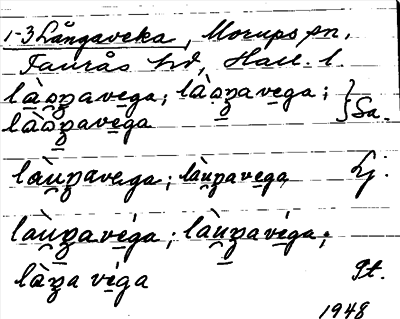 1-3 Långaveka, Morups sn,
Faurås hd, Hall. l.
là̯o̯ŋavega; là̯o̯ŋavega; } Sa.
là̯o̯ŋavega
làu̯ŋavega; làu̯ŋavega Lj.
làu̯ŋavéga; làu̯ŋavéga;
làŋavéga Gt.
1948